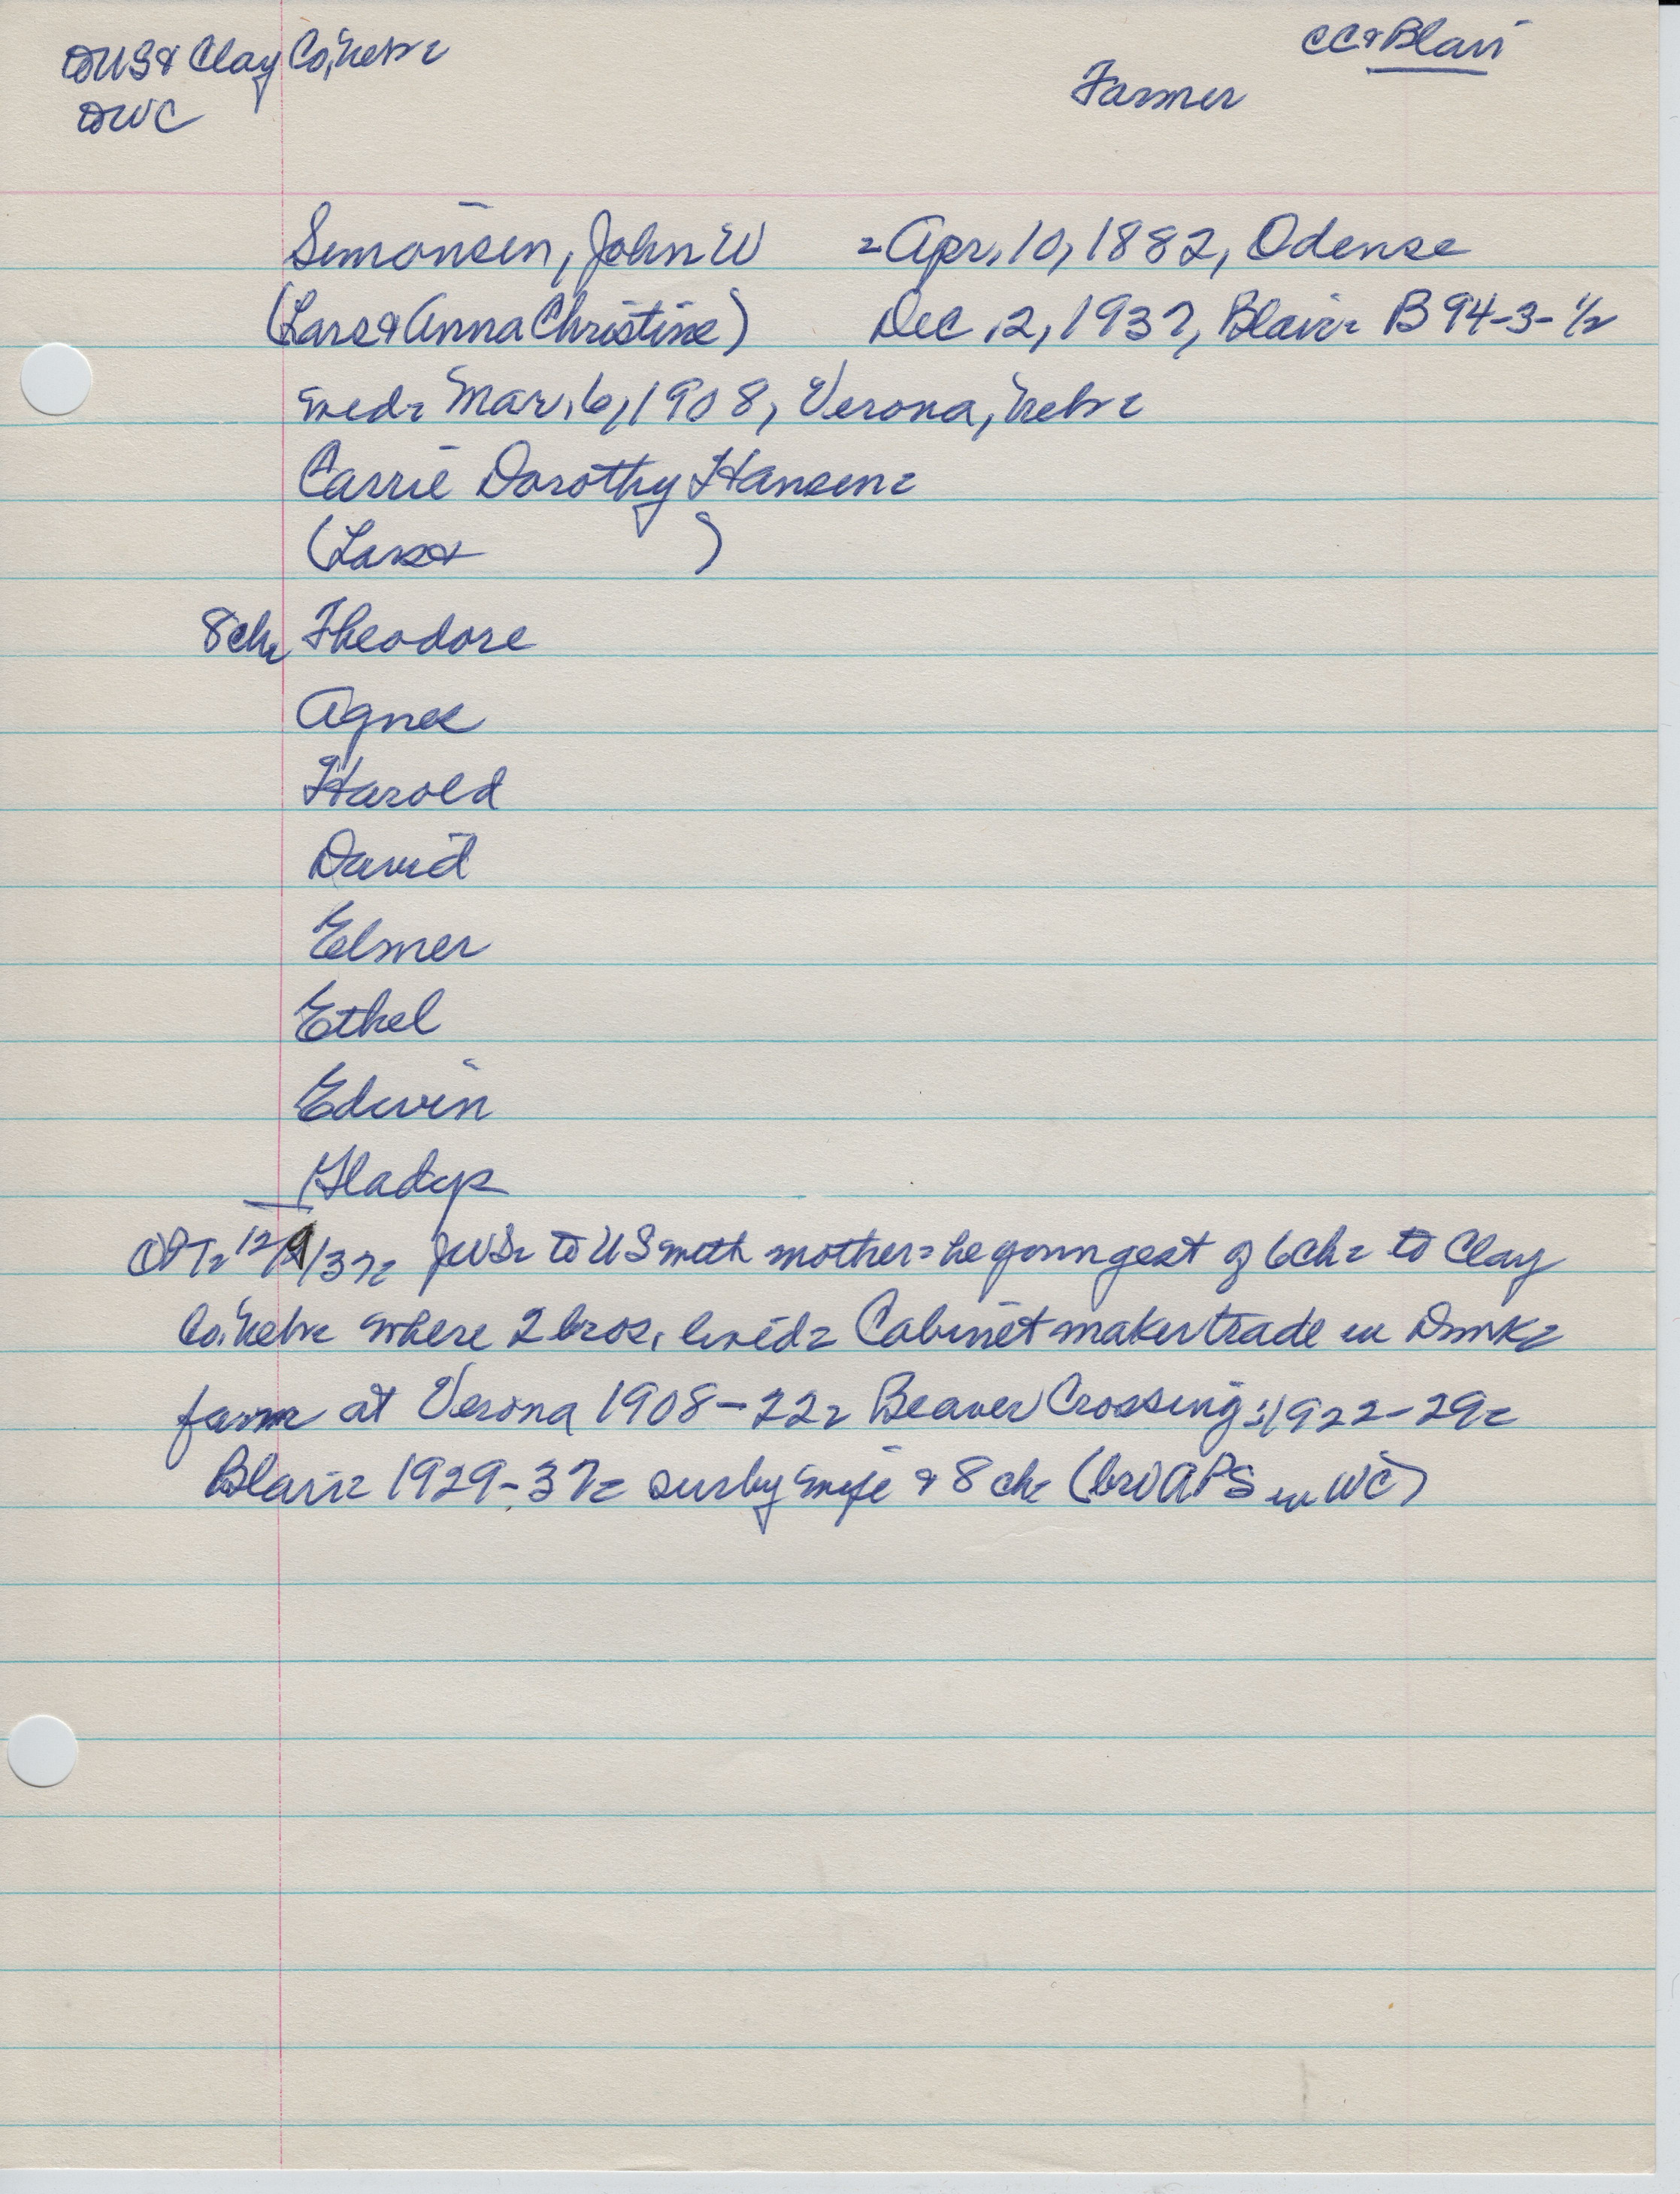 DUS & Clay Co, Nebr=
DWC
CC & Blair
Farmer
Simonsen, John W = Apr, 10, 1882, Odense
(Lars & Anna Christine) Dec, 2, 1937, Blair= B 94-3-1/2
wed= Mar, 6, 1908, Verona, Nebr=
Carrie Dorothy Hansen=
(Lars & )
8ch= Theodore
Agnes
Harold
David
Elmer
Ethel
Edwin
Gladys
OPT= 12/9/37= JWS= to US with mother= he youngest of 6ch= to Clay
Co, Nebr= where 2 bros, lived= Cabinet maker trade in Dmk=
farmr at Verona 1908-22= Beaver Crossing: 1922-29=
Blair= 1929-37= sur by wife & 8 ch= (bro APS in WC)